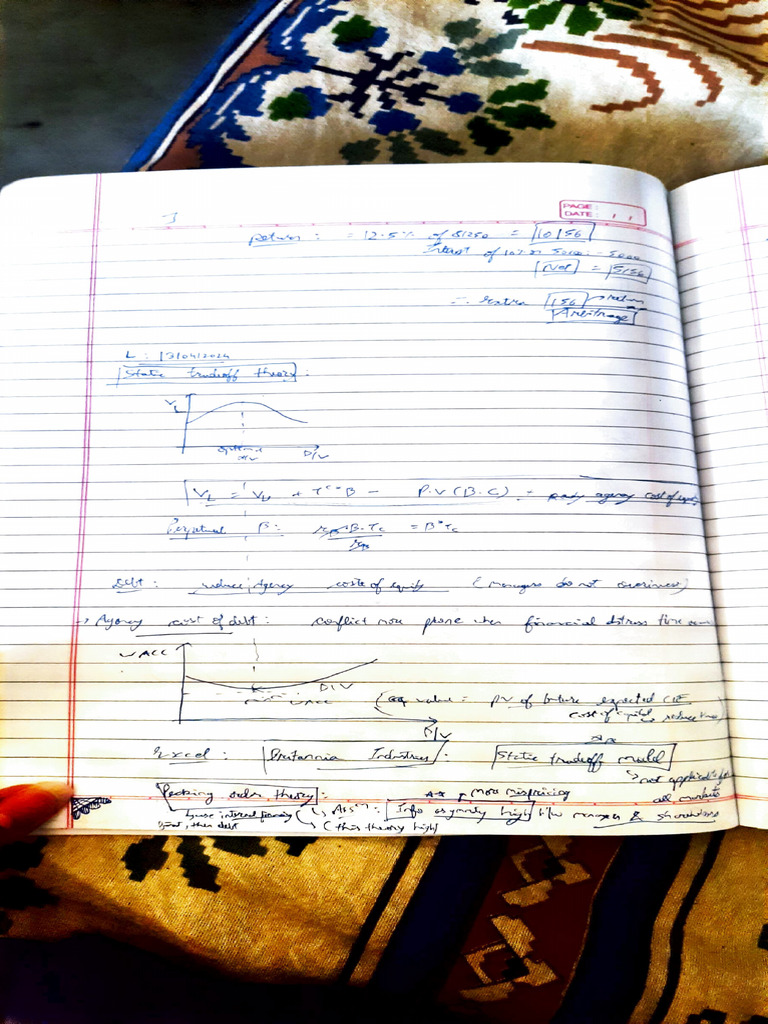 PAGE:
DATE: / /
Return : = 12.5% of 81250 = 10156
Interest of 10% on 5000: - 5000
Net = 5156
∴ extra 156 return
Arbitrage
L : 13/04/2024
Static tradeoff theory :
VL
optimal D/V
D/V
VL = VU + Tc * B - P.V (B.C) - agency cost of equity
Perpetual B : B.Tc = B*Tc
Debt : reduce Agency costs of equity (managers do not overinvest)
→ Agency cost of debt : conflict more phone when financial distress time
WACC
D/V
WACC
(eq value = PV of future expected C/F
cost of capital reduce
D/V
Excel : Britannia Industries : Static tradeoff model
→ not applicable for all markets
Pecking order theory : more mispricing
use internal financing first, then debt
Assn : Info asymmetry high b/w managers & shareholders
(this theory high)